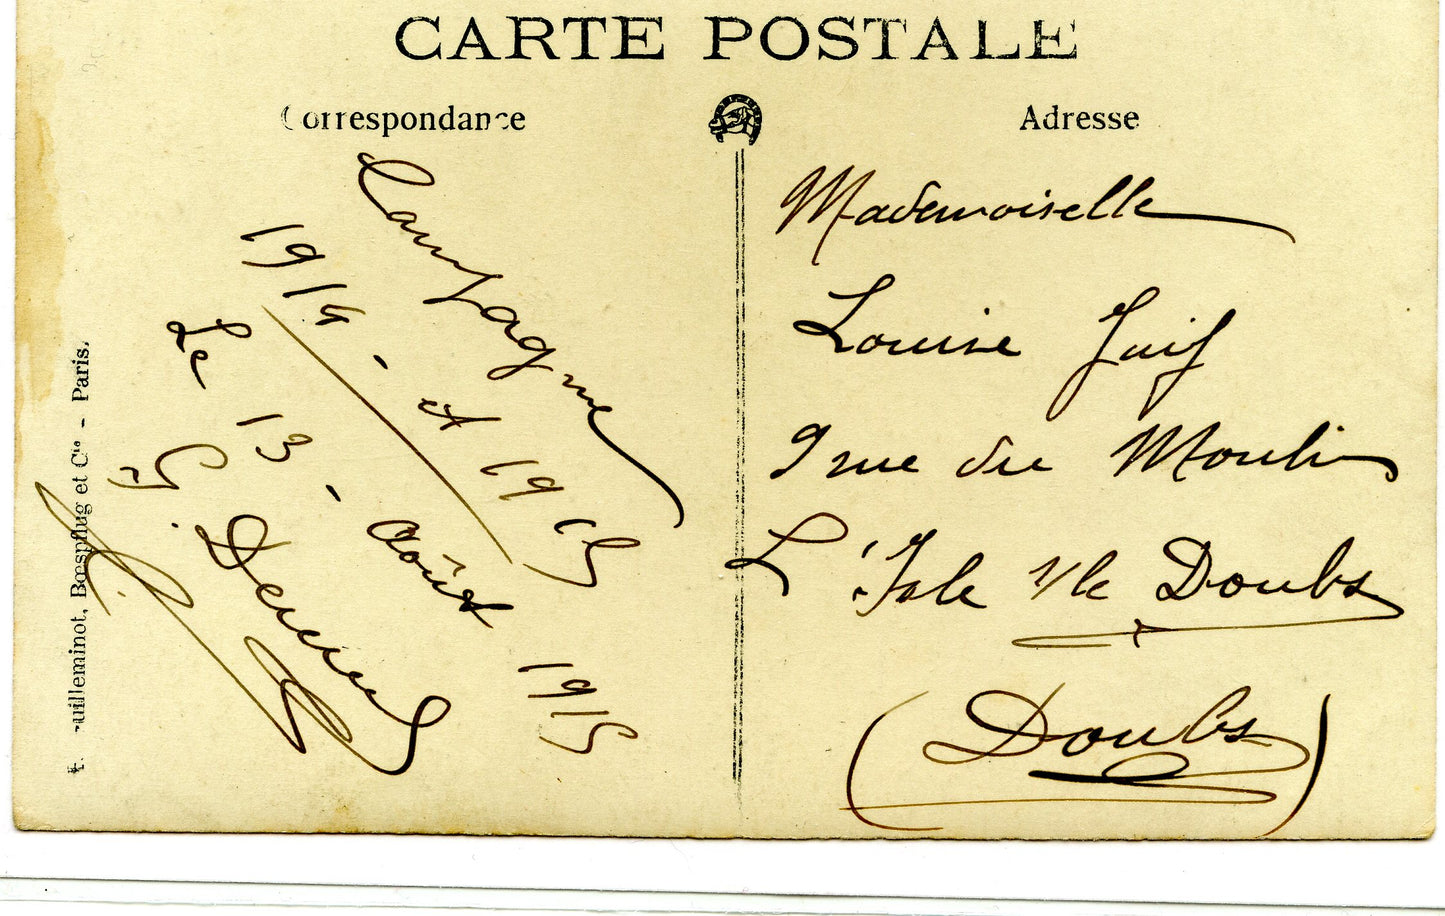 CARTE POSTALE
Correspondance
Adresse
Campagne
1914 - et 1915
Le 13 - Août 1915
G.
Mademoiselle
Louise Juif
9 rue du Moulin
L'Isle s/le Doubs
(Doubs)
Guilleminot, Bœspflug et Cie - Paris.